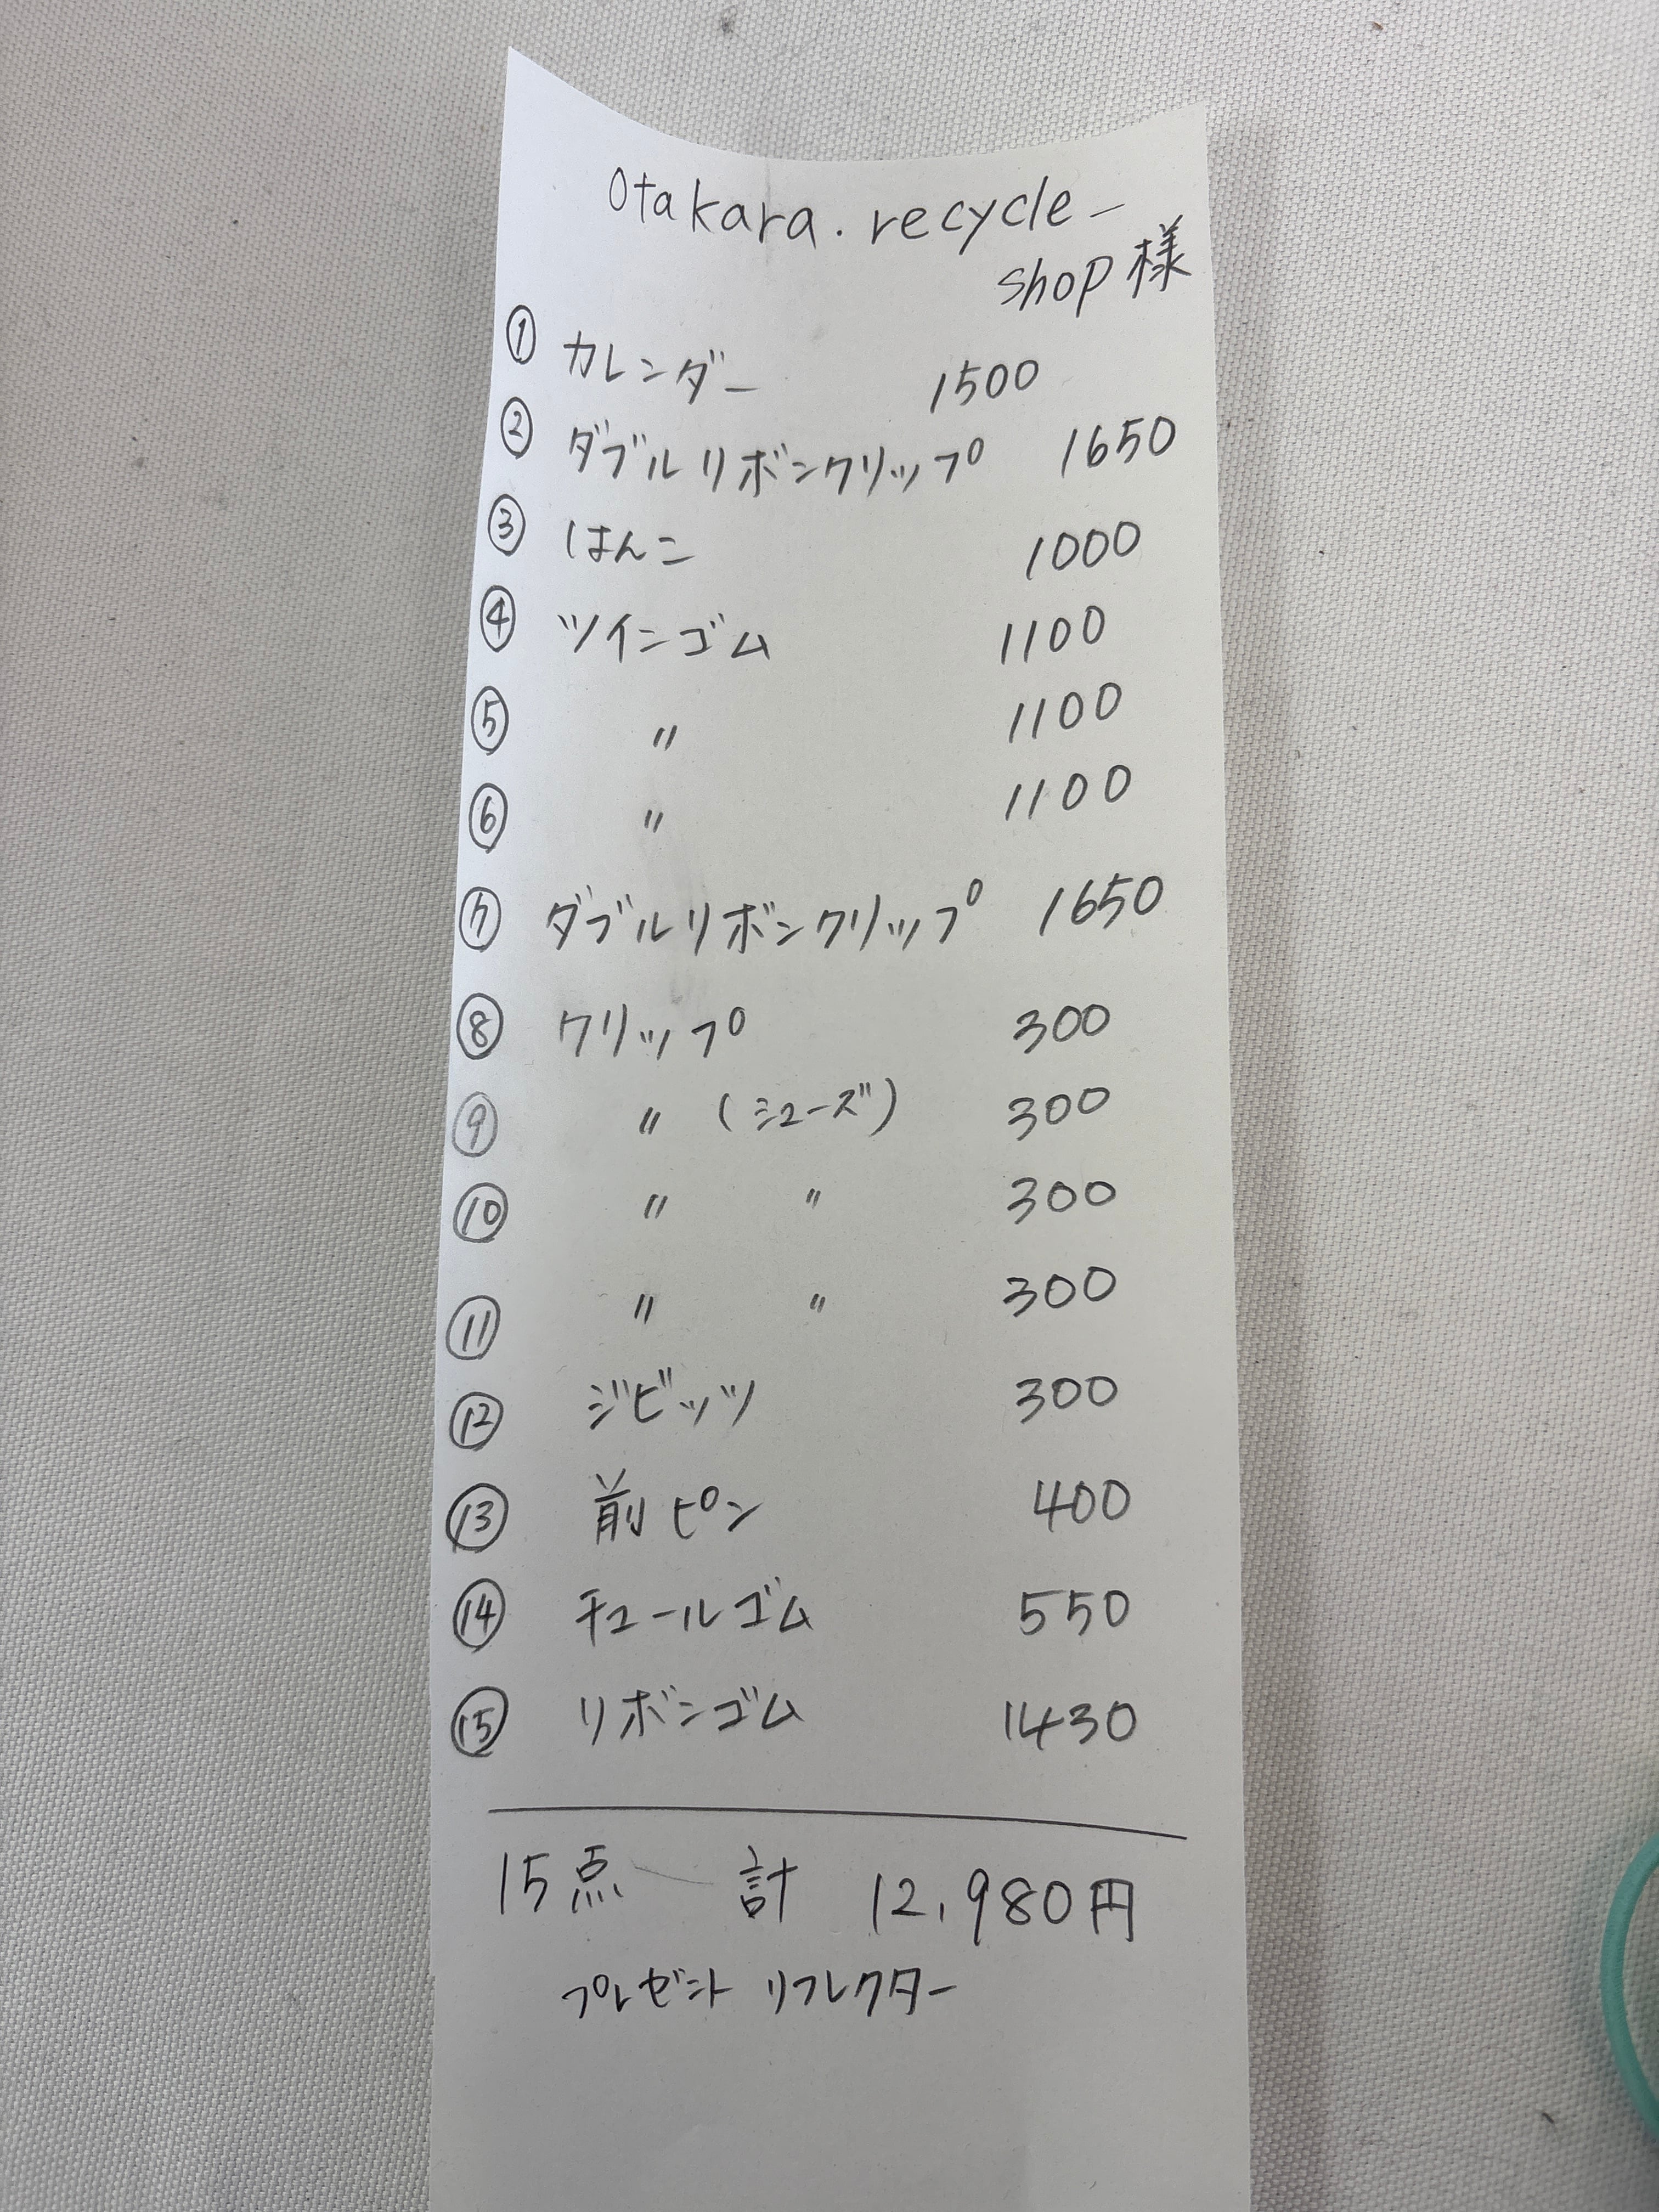 otakara.recycle_
shop様
① カレンダー 1500
② ダブルリボンクリップ 1650
③ はんこ 1000
④ ツインゴム 1100
⑤ 〃 1100
⑥ 〃 1100
⑦ ダブルリボンクリップ 1650
⑧ クリップ 300
⑨ 〃 (シューズ) 300
⑩ 〃 〃 300
⑪ 〃 〃 300
⑫ ジビッツ 300
⑬ 前ピン 400
⑭ チュールゴム 550
⑮ リボンゴム 1430
15点 計 12,980円
プレゼント リフレクター